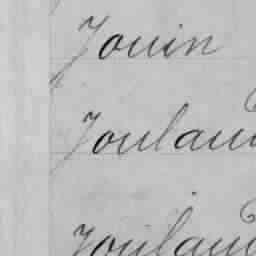 Jouin
Joulau
Joulau